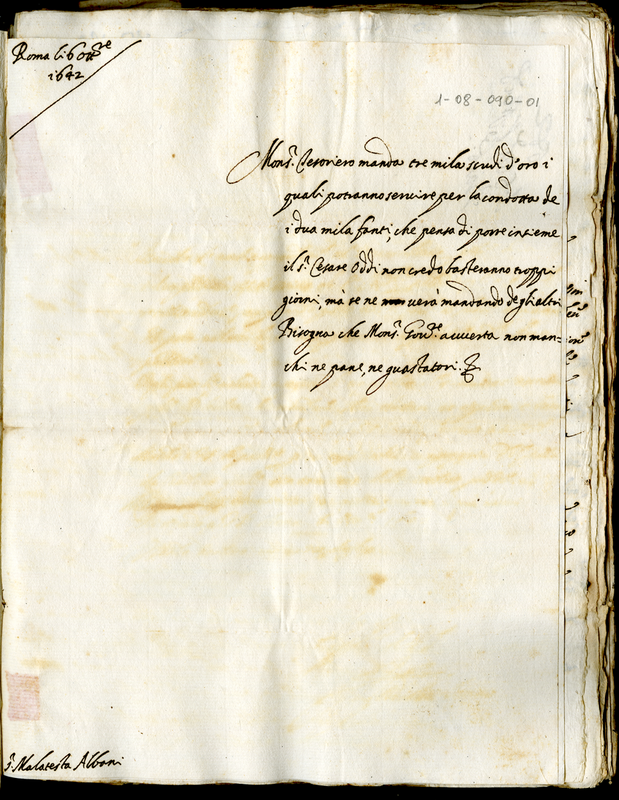 Roma li 6 ott.re
1642
1-08-090-01
Mons.r Tesoriero manda tre mila scudi d'oro i
quali potranno servire per la condotta de
i dua mila fanti, che pensa di porre insieme
il s.r Cesare Oddi non credo basteranno troppi
giorni, mà se ne verà mandando de gli altri
Bisogna che Mons.r Gov.re avverta non man=
chi ne pane, ne guastatori.
s.r Malatesta Albani